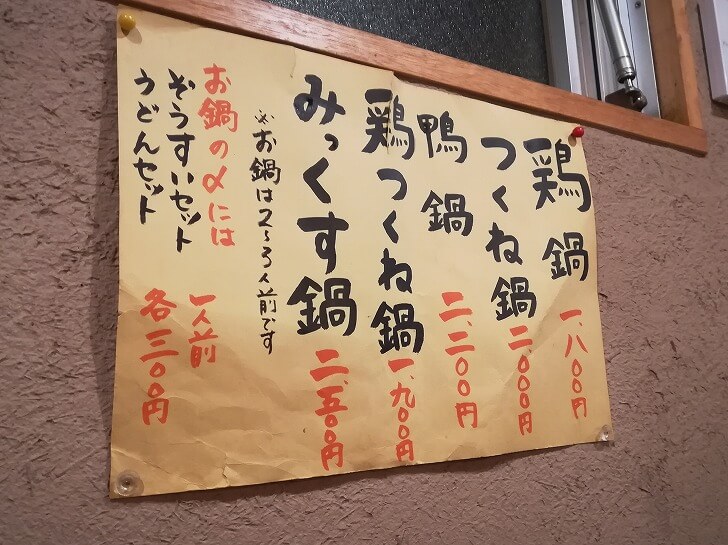 鶏鍋 一、八〇〇円
つくね鍋 二、〇〇〇円
鴨鍋 二、二〇〇円
鶏つくね鍋 一、九〇〇円
みっくす鍋 二、五〇〇円
※お鍋は2〜3人前です
お鍋の〆には 一人前
ぞうすいセット 各三〇〇円
うどんセット